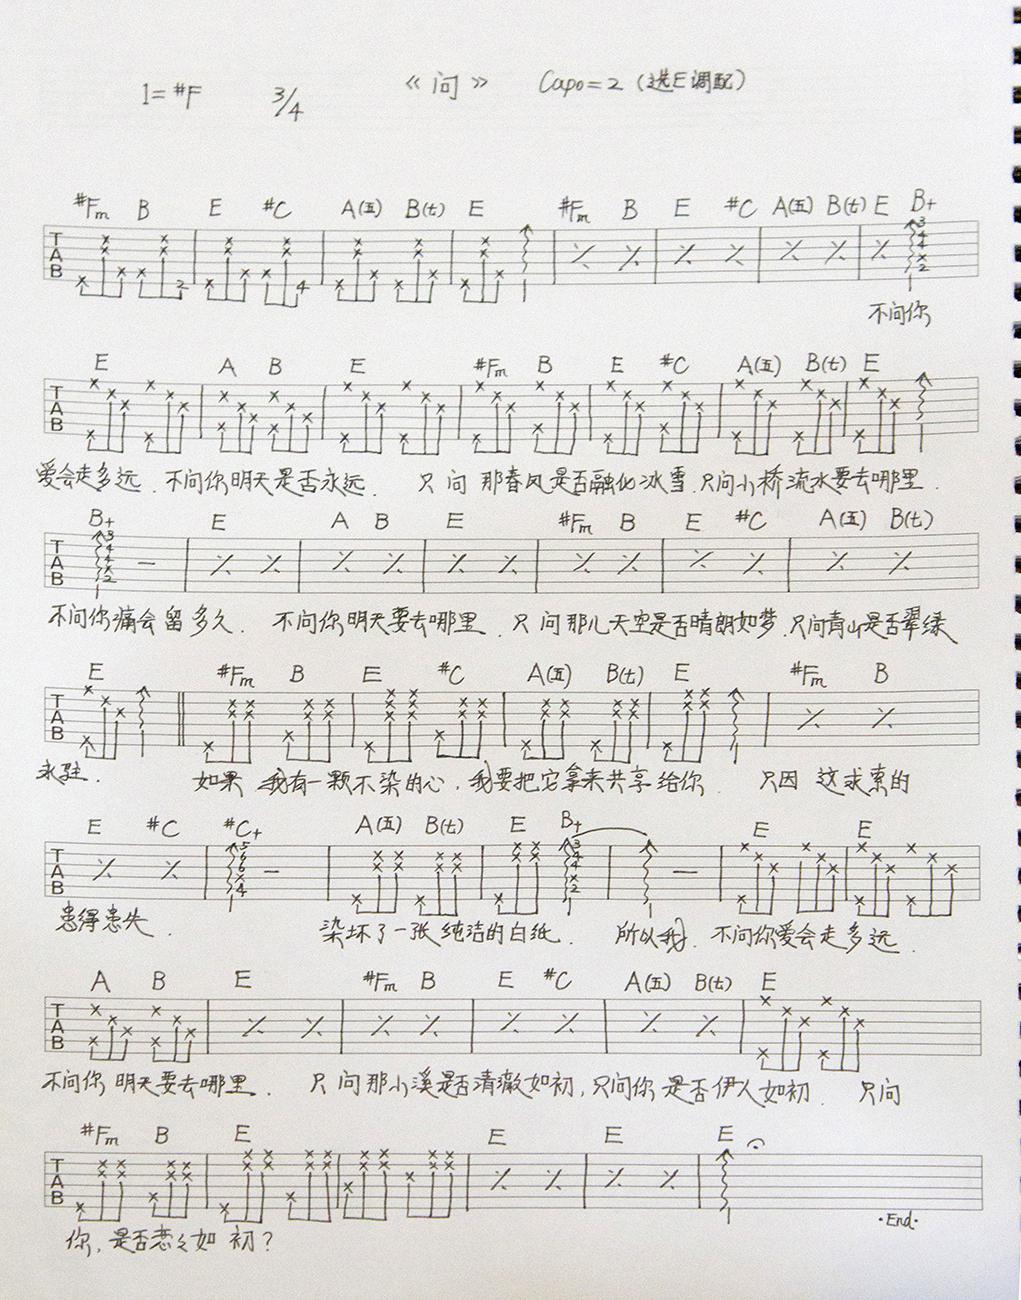 1=#F 3/4 《问》 Capo=2(选E调配)
#Fm B E #C A(五) B(七) E #Fm B E #C A(五) B(七) E B+
T A B 2 4 3 4 4 2
不问你
E A B E #Fm B E #C A(五) B(七) E
T A B
爱会走多远.不问你明天是否永远. 只问那春风是否融化冰雪.只问小桥流水要去哪里.
B+ E A B E #Fm B E #C A(五) B(七)
T A B 3 4 4 2
不问你痛会留多久. 不问你明天要去哪里.只问那儿天空是否晴朗如梦.只问青山是否翠绿
E #Fm B E #C A(五) B(七) E #Fm B
T A B
永驻. 如果 我有一颗不染的心.我要把它拿来共享给你. 只因 这求索的
E #C #C+ A(五) B(七) E B+ E E
T A B 5 6 6 4 3 4 4 2
患得患失. 染坏了一张纯洁的白纸. 所以我.不问你爱会走多远.
A B E #Fm B E #C A(五) B(七) E
T A B
不问你明天要去哪里. 只问那小溪是否清澈如初,只问你是否伊人如初. 只问
#Fm B E E E E
T A B
·End·
你,是否恋々如初?